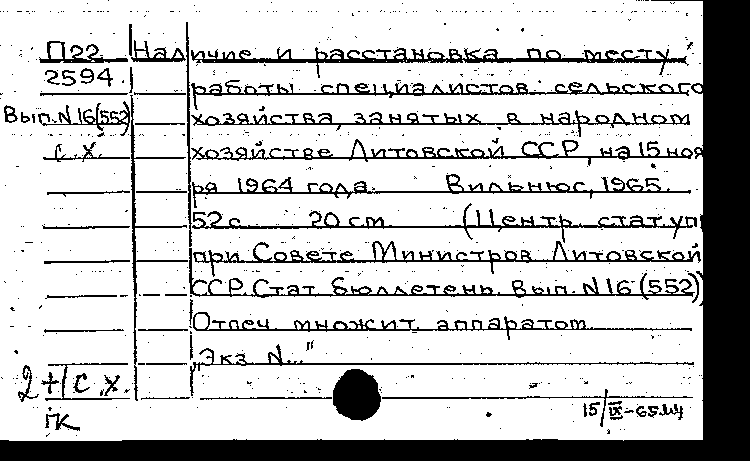 П22 Наличие и расстановка по месту
2594. работы специалистов сельского
Вып.N16(552) хозяйства, занятых в народном
с.х. хозяйстве Литовской ССР, на 15 нояб
ря 1964 года. Вильнюс, 1965.
52 с. 20 см. (Центр. стат. упр
при Совете Министров Литовской
ССР. Стат. бюллетень. Вып. N16 (552))
Отпеч. множит. аппаратом.
„Экз. N..."
2+1 с.х.
пк 15/IX-65